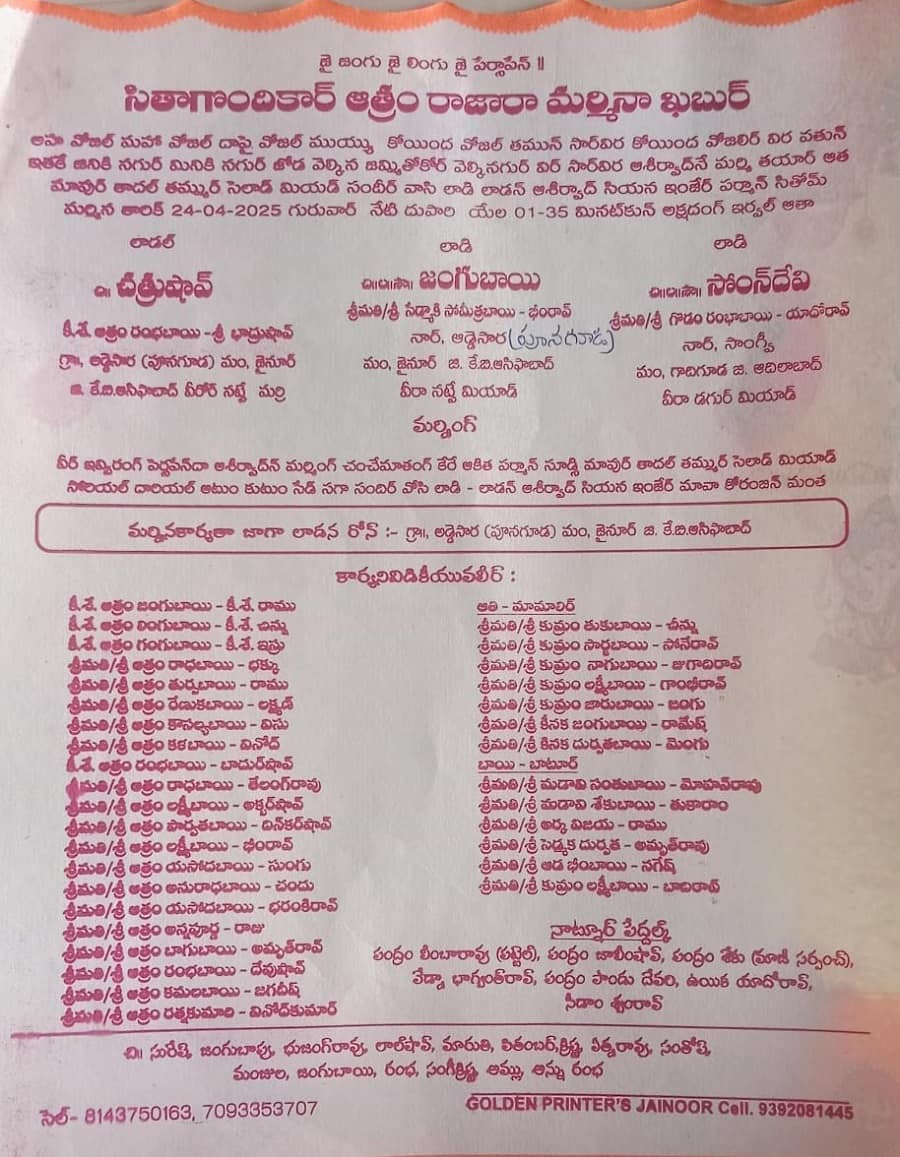 జై జంగు జై లింగు జై పేర్సాపేన్ ॥
సితాగొందికార్ ఆత్రం రాజారా మర్మినా ఖబుర్
అహ వోజల్ మహా వోజల్ దాపై వోజల్ ముయ్యు కోయింద వోజల్ తమున్ సార్‌విర కోయింద వోజలిర్ విర వతున్
ఇతకే జనికి నగుర్ మినికి నగుర్ జోడ వెల్కిన జమ్మితోకోర్ వెల్కినగుర్ విర్ సార్‌విర ఆశీర్వాద్‌నే మర్మి తయార్ ఆత
మావుర్ తాదల్ తమ్ముర్ సెలాడ్ మియడ్ సందీర్ వాసి లాడి లాడన్ ఆశీర్వాద్ సియన ఇంజేర్ పర్మాన్ సితోమ్
మర్మిన తారిక్ 24-04-2025 గురువార్ నేటి దుపారి యేల 01-35 మినట్‌కున్ అక్షదంగ్ ఇర్వల్ ఆతా
లాడల్
చి॥ చత్రుషావ్
కీ.శే. ఆత్రం రంభబాయి -శ్రీ భాద్రుషావ్
గ్రా, అడ్డెసార (పూనగూడ) మం, జైనూర్
జి. కే.బి.ఆసిఫాబాద్ వీరోర్ నట్వే మర్రి
లాడి
చి॥ల॥సౌ॥ జంగుబాయి
శ్రీమతి/శ్రీ సేడ్మాకి సోమిత్రబాయి - భీంరావ్
నార్, ఆడ్డెసార (పూనగూడ)
మం, జైనూర్ జి. కే.బి.ఆసిఫాబాద్
వీరా నట్వే మియాడ్
లాడి
చి॥ల॥సౌ॥ సోంన్‌దేవి
శ్రీమతి/శ్రీ గొడం రంభాబాయి - యాదోరావ్
నార్, సాంగ్వీ
మం, గాదిగూడ జి. ఆదిలాబాద్
వీరా డగుర్ మియాడ్
మర్మింగ్
వీర్ ఇవ్విరంగ్ పెర్సపేన్‌దా ఆశీర్వాద్‌న్ మర్మింగ్ చంచేమాతంగ్ కేరే ఆకిత పర్మాన్ సూడ్సి మావుర్ తాదల్ తమ్ముర్ సెలాడ్ మియాడ్
సోరియల్ దారియల్ ఆటుం కుటుం సేడ్ సగా సందిర్ వోసి లాడి - లాడన్ ఆశీర్వాద్ సియన ఇంజేర్ మావా కోరంజన్ మంత
మర్మినకార్యతా జాగా లాడన రోన్ :- గ్రా॥, అడ్డెసార (పూనగూడ) మం, జైనూర్ జి. కే.బి.ఆసిఫాబాద్
కార్యనివిడికీయువలీర్ :
కీ.శే. ఆత్రం జంగుబాయి - కీ.శే. రాము
కీ.శే. ఆత్రం లింగుబాయి - కీ.శే. చిన్ను
కీ.శే. ఆత్రం గంగుబాయి - కీ.శే. ఇస్రు
శ్రీమతి/శ్రీ ఆత్రం రాధబాయి - ధక్కు
శ్రీమతి/శ్రీ ఆత్రం తుర్పబాయి - రాము
శ్రీమతి/శ్రీ ఆత్రం రేణుకబాయి - లక్ష్మణ్
శ్రీమతి/శ్రీ ఆత్రం కౌసల్యబాయి - విసు
శ్రీమతి/శ్రీ ఆత్రం కళబాయి - వినోద్
కీ.శే. ఆత్రం రంభబాయి - బాదుర్‌షావ్
శ్రీమతి/శ్రీ ఆత్రం రాధబాయి - తేలంగ్‌రావు
శ్రీమతి/శ్రీ ఆత్రం లక్ష్మీబాయి - అక్బర్‌షావ్
శ్రీమతి/శ్రీ ఆత్రం పార్వతబాయి - దిన్‌కర్‌షావ్
శ్రీమతి/శ్రీ ఆత్రం లక్ష్మీబాయి - భీంరావ్
శ్రీమతి/శ్రీ ఆత్రం యసోదబాయి - సుంగు
శ్రీమతి/శ్రీ ఆత్రం అనురాధబాయి - చందు
శ్రీమతి/శ్రీ ఆత్రం యసోదబాయి - భరంకిరావ్
శ్రీమతి/శ్రీ ఆత్రం అన్నపూర్ణ - రాజు
శ్రీమతి/శ్రీ ఆత్రం బాగుబాయి - అమృత్‌రావ్
శ్రీమతి/శ్రీ ఆత్రం రంభబాయి - దేవుషావ్
శ్రీమతి/శ్రీ ఆత్రం కమలబాయి - జగదీష్
శ్రీమతి/శ్రీ ఆత్రం రత్నకుమారి - వినోద్‌కుమార్
ఆతి - మామాలిర్
శ్రీమతి/శ్రీ కుమ్రం తుకుబాయి - చిన్ను
శ్రీమతి/శ్రీ కుమ్రం సార్జబాయి - సోనేరావ్
శ్రీమతి/శ్రీ కుమ్రం నాగుబాయి - జుగాదిరావ్
శ్రీమతి/శ్రీ కుమ్రం లక్ష్మీబాయి - గాంభీరావ్
శ్రీమతి/శ్రీ కుమ్రం జారుబాయి - జంగు
శ్రీమతి/శ్రీ కినక జంగుబాయి - రామేష్
శ్రీమతి/శ్రీ కినక దుర్పతబాయి - మెంగు
బాయి - బాటూర్
శ్రీమతి/శ్రీ మడావి సంతుబాయి - మోహన్‌రావు
శ్రీమతి/శ్రీ మడావి శేకుబాయి - తుకారాం
శ్రీమతి/శ్రీ అర్క విజయ - రాము
శ్రీమతి/శ్రీ సెడ్మక దుర్పత - అమృత్‌రావు
శ్రీమతి/శ్రీ ఆడ భీంబాయి - నగేష్
శ్రీమతి/శ్రీ కుమ్రం లక్ష్మీబాయి - బాదిరావ్
నాట్నూర్ పేద్దల్క్
పంద్రం లింబారావు (పట్టెల్), పంద్రం జాలింషావ్, పంద్రం శేకు (మాజీ సర్పంచ్),
వేడ్మా భాగ్వంత్‌రావ్, పంద్రం పాండు దేవరి, ఉయిక యాదోరావ్,
సీడాం శ్యంరావ్
చి॥ సురేష్, జంగుబాపు, భుజంగ్‌రావు, లాల్‌షావ్, మారుతి, పితంబర్,క్రిష్ణ, ఏత్మరావు, సంతోష్,
మంజుల, జంగుబాయి, రంభ, సంగీక్రిష్ణ, అమ్ము, అన్ను రంభ
సెల్- 8143750163, 7093353707
GOLDEN PRINTER'S JAINOOR Cell. 9392081445